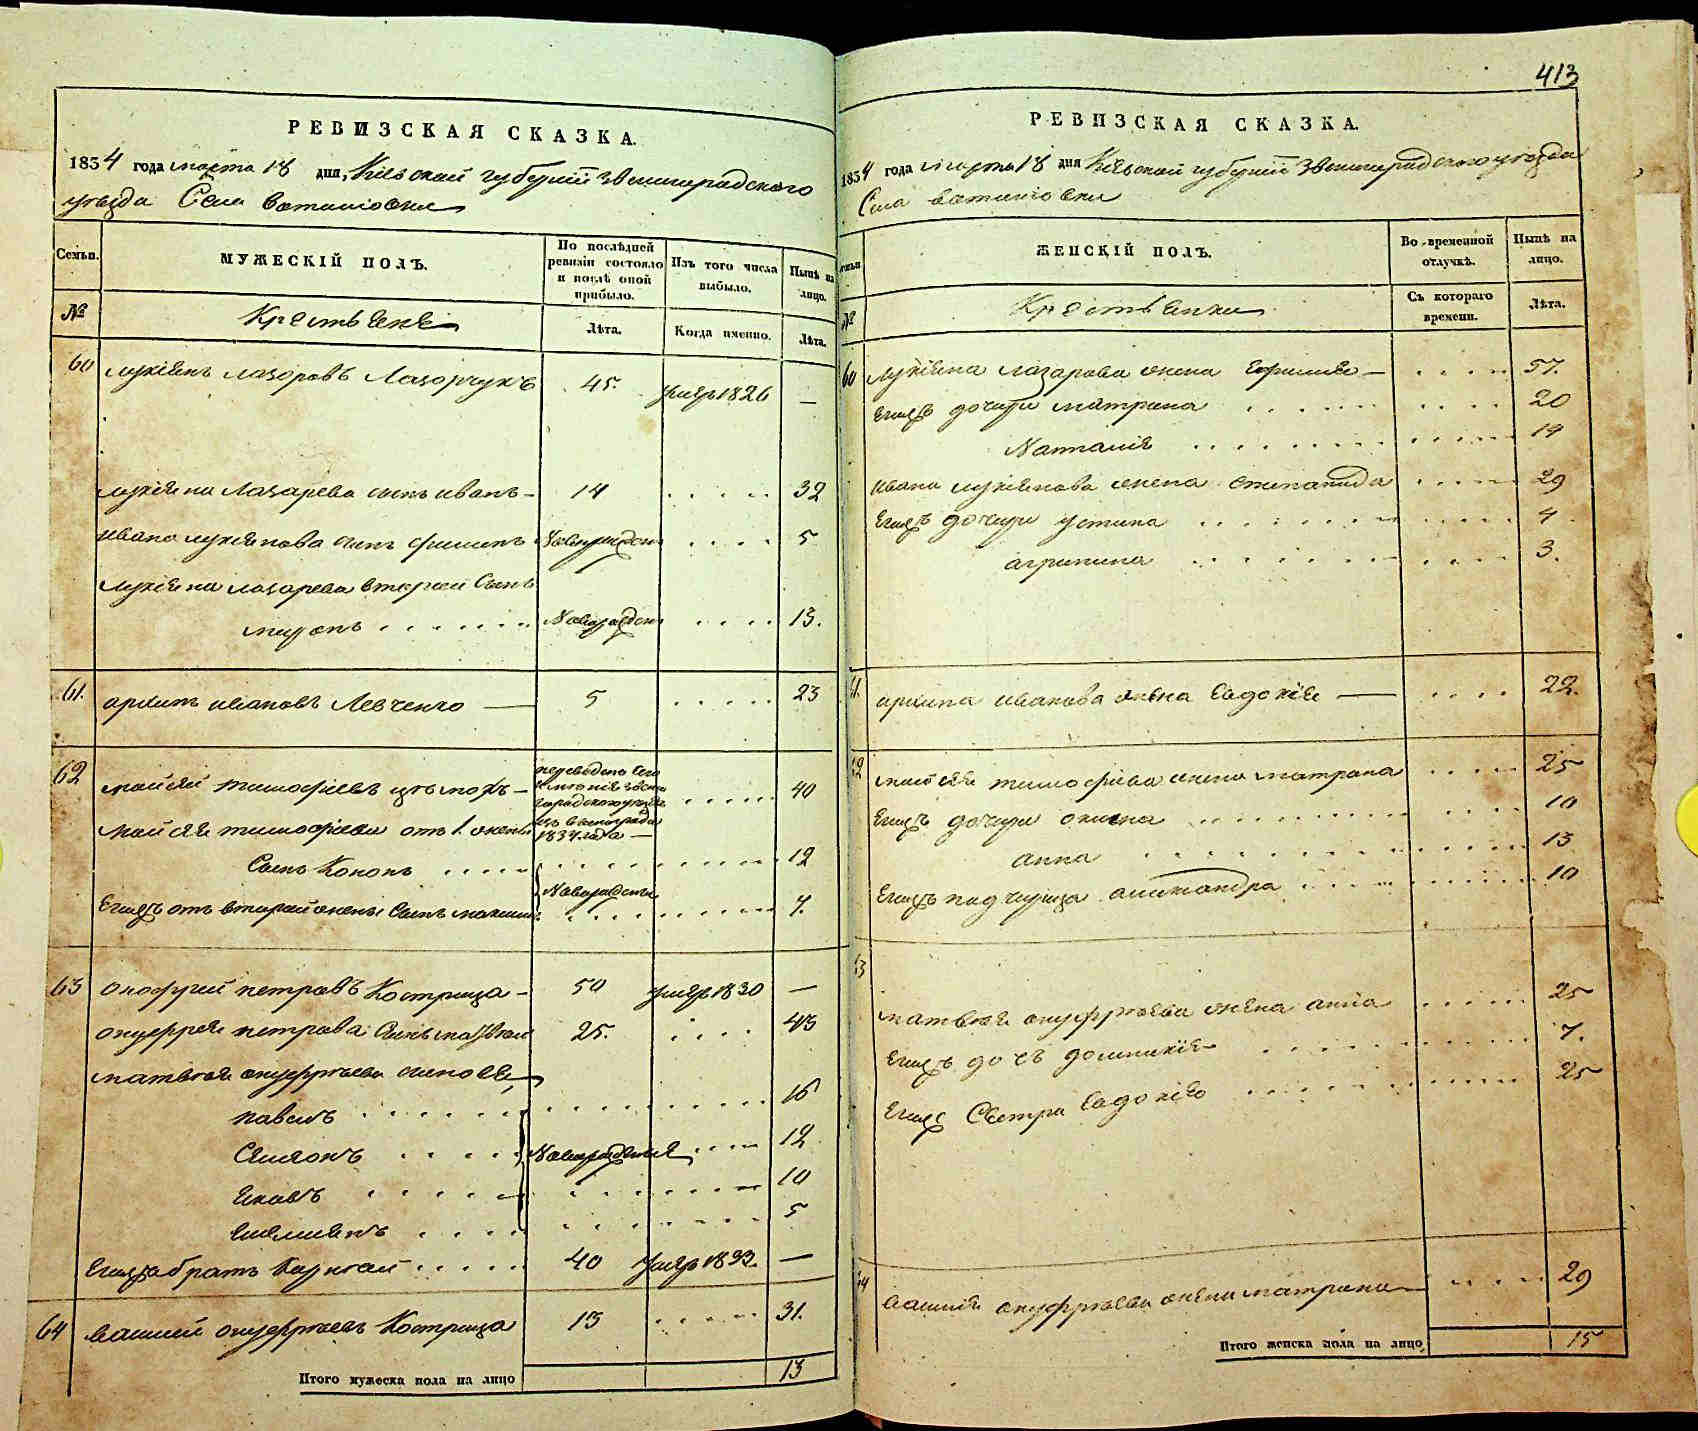 413
РЕВИЗСКАЯ СКАЗКА.
1834 года марта 18 дня, Киевской губернии Звенигородского
уезда Села
Семьи.
МУЖЕСКІЙ ПОЛЪ.
По послѣдней ревизіи состояло и послѣ оной прибыло.
Изъ того числа выбыло.
Нынѣ на лицо.
№
Крестьяне
Лѣта.
Когда именно.
Лѣта.
60 Лукіянъ Лазоровъ Лазорчукъ 45. умеръ 1826 —
Лукіяна Лазарева сынъ иванъ 14 32
ивана лукіянова сынъ филипъ Новорожден 5
Лукіяна лазарева вторый Сынъ
миронъ Новорожден 13.
61. архипъ ивановъ Левченко — 5 23
62 моисей тимофіевъ 40
1834 года —
моисея тимофіева отъ 1. жены
Сынъ Кононъ 12
Егожъ отъ второй жены Сынъ максимъ Новорожденъ 7.
63 онофрий петровъ Кострица 50 умеръ 1830 —
онуфрея петрова Сынъ матвей 25. 43
матвея онуфриева сыновья
павелъ 16
Семонъ Новорожденъ 12
Яковъ 10
Емелиянъ 5
Егожъ братъ 40 умеръ 1833. —
64 василий онуфриевъ Кострица 13 31.
Итого мужеска пола на лицо 13
РЕВИЗСКАЯ СКАЗКА.
1834 года марта 18 дня Киевской губернии Звенигородского уезда
Села
Семьи
ЖЕНСКІЙ ПОЛЪ.
Во временной отлучкѣ.
Нынѣ на лицо.
№
Крестьянки
Съ котораго времени.
Лѣта.
60 Лукіяна лазарева жена 57.
Егожъ дочери матрина 20
Наталия 14
ивана лукіянова жена степанида 29
Егожъ дочери устина 4
агрипина 3.
61. архипа иванова жена Евдокія — 22.
62 моисея тимофіева жена матрона 25
Егожъ дочери 10
анна 13
Егожъ падчерица александра 10
63
матвея онуфриева жена анна 25
Егожъ дочь 7.
Егожъ Сестра Евдокія 25
64 василия онуфриева жена матрона 29
Итого женска пола на лицо 15